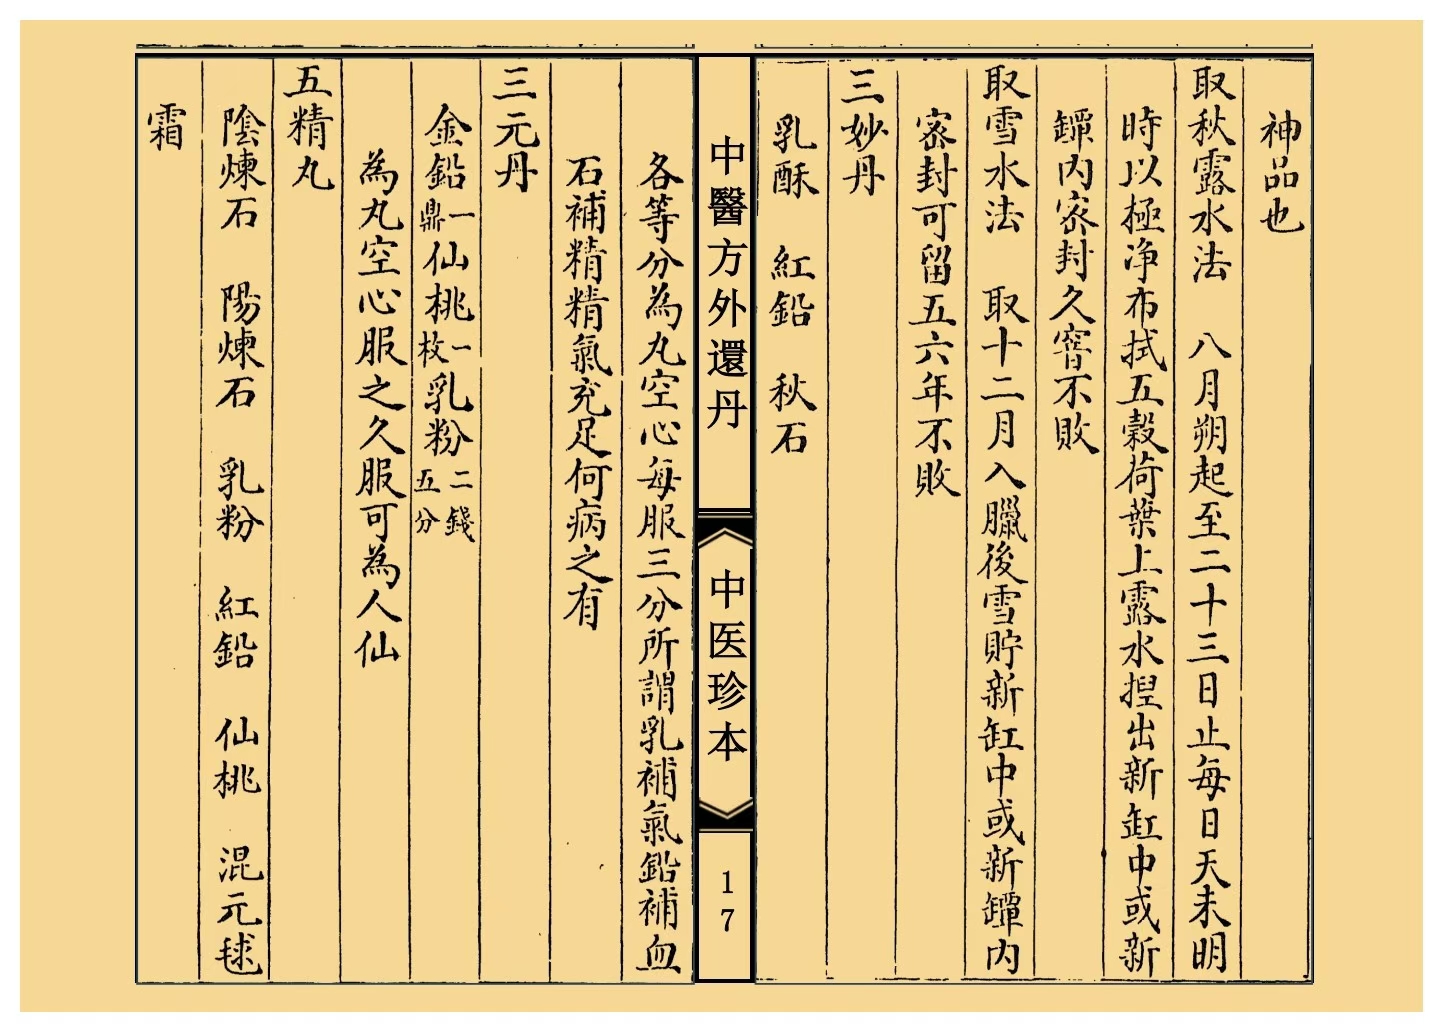 神品也
取秋露水法　八月朔起至二十三日止每日天未明
時以極净布拭五穀荷葉上露水揑出新缸中或新
罈内密封久窨不敗
取雪水法　取十二月入臘後雪貯新缸中或新罈内
密封可留五六年不敗
三妙丹
乳酥　紅鉛　秋石
中醫方外還丹
中医珍本
17
各等分為丸空心每服三分所謂乳補氣鉛補血
石補精精氣充足何病之有
三元丹
金鉛一鼎仙桃一枚乳粉二錢五分
為丸空心服之久服可為人仙
五精丸
陰煉石　陽煉石　乳粉　紅鉛　仙桃　混元毬
霜